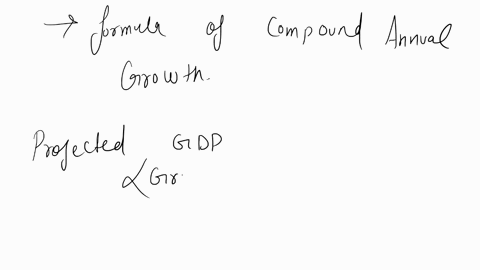 → formula of Compound Annual
Growth.
Projected GDP
Gr